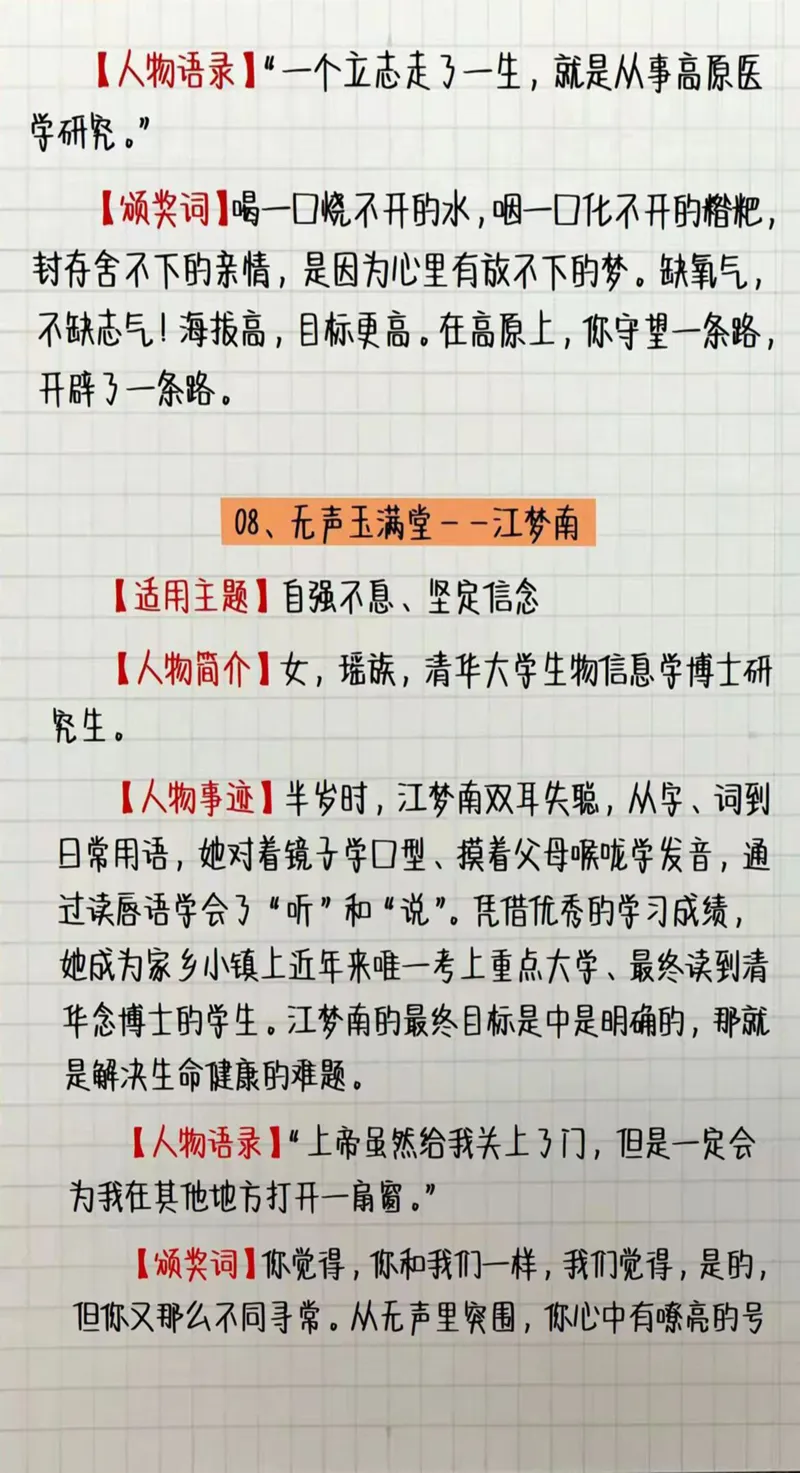 【人物语录】“一个立志走了一生，就是从事高原医
学研究。”
【颁奖词】喝一口烧不开的水，咽一口化不开的糌粑，
封存舍不下的亲情，是因为心里有放不下的梦。缺氧气，
不缺志气！海拔高，目标更高。在高原上，你守望一条路，
开辟了一条路。
08、无声玉满堂--江梦南
【适用主题】自强不息、坚定信念
【人物简介】女，瑶族，清华大学生物信息学博士研
究生。
【人物事迹】半岁时，江梦南双耳失聪，从字、词到
日常用语，她对着镜子学口型、摸着父母喉咙学发音，通
过读唇语学会了“听”和“说”。凭借优秀的学习成绩，
她成为家乡小镇上近年来唯一考上重点大学、最终读到清
华念博士的学生。江梦南的最终目标是中是明确的，那就
是解决生命健康的难题。
【人物语录】“上帝虽然给我关上了门，但是一定会
为我在其他地方打开一扇窗。”
【颁奖词】你觉得，你和我们一样，我们觉得，是的，
但你又那么不同寻常。从无声里突围，你心中有嘹亮的号